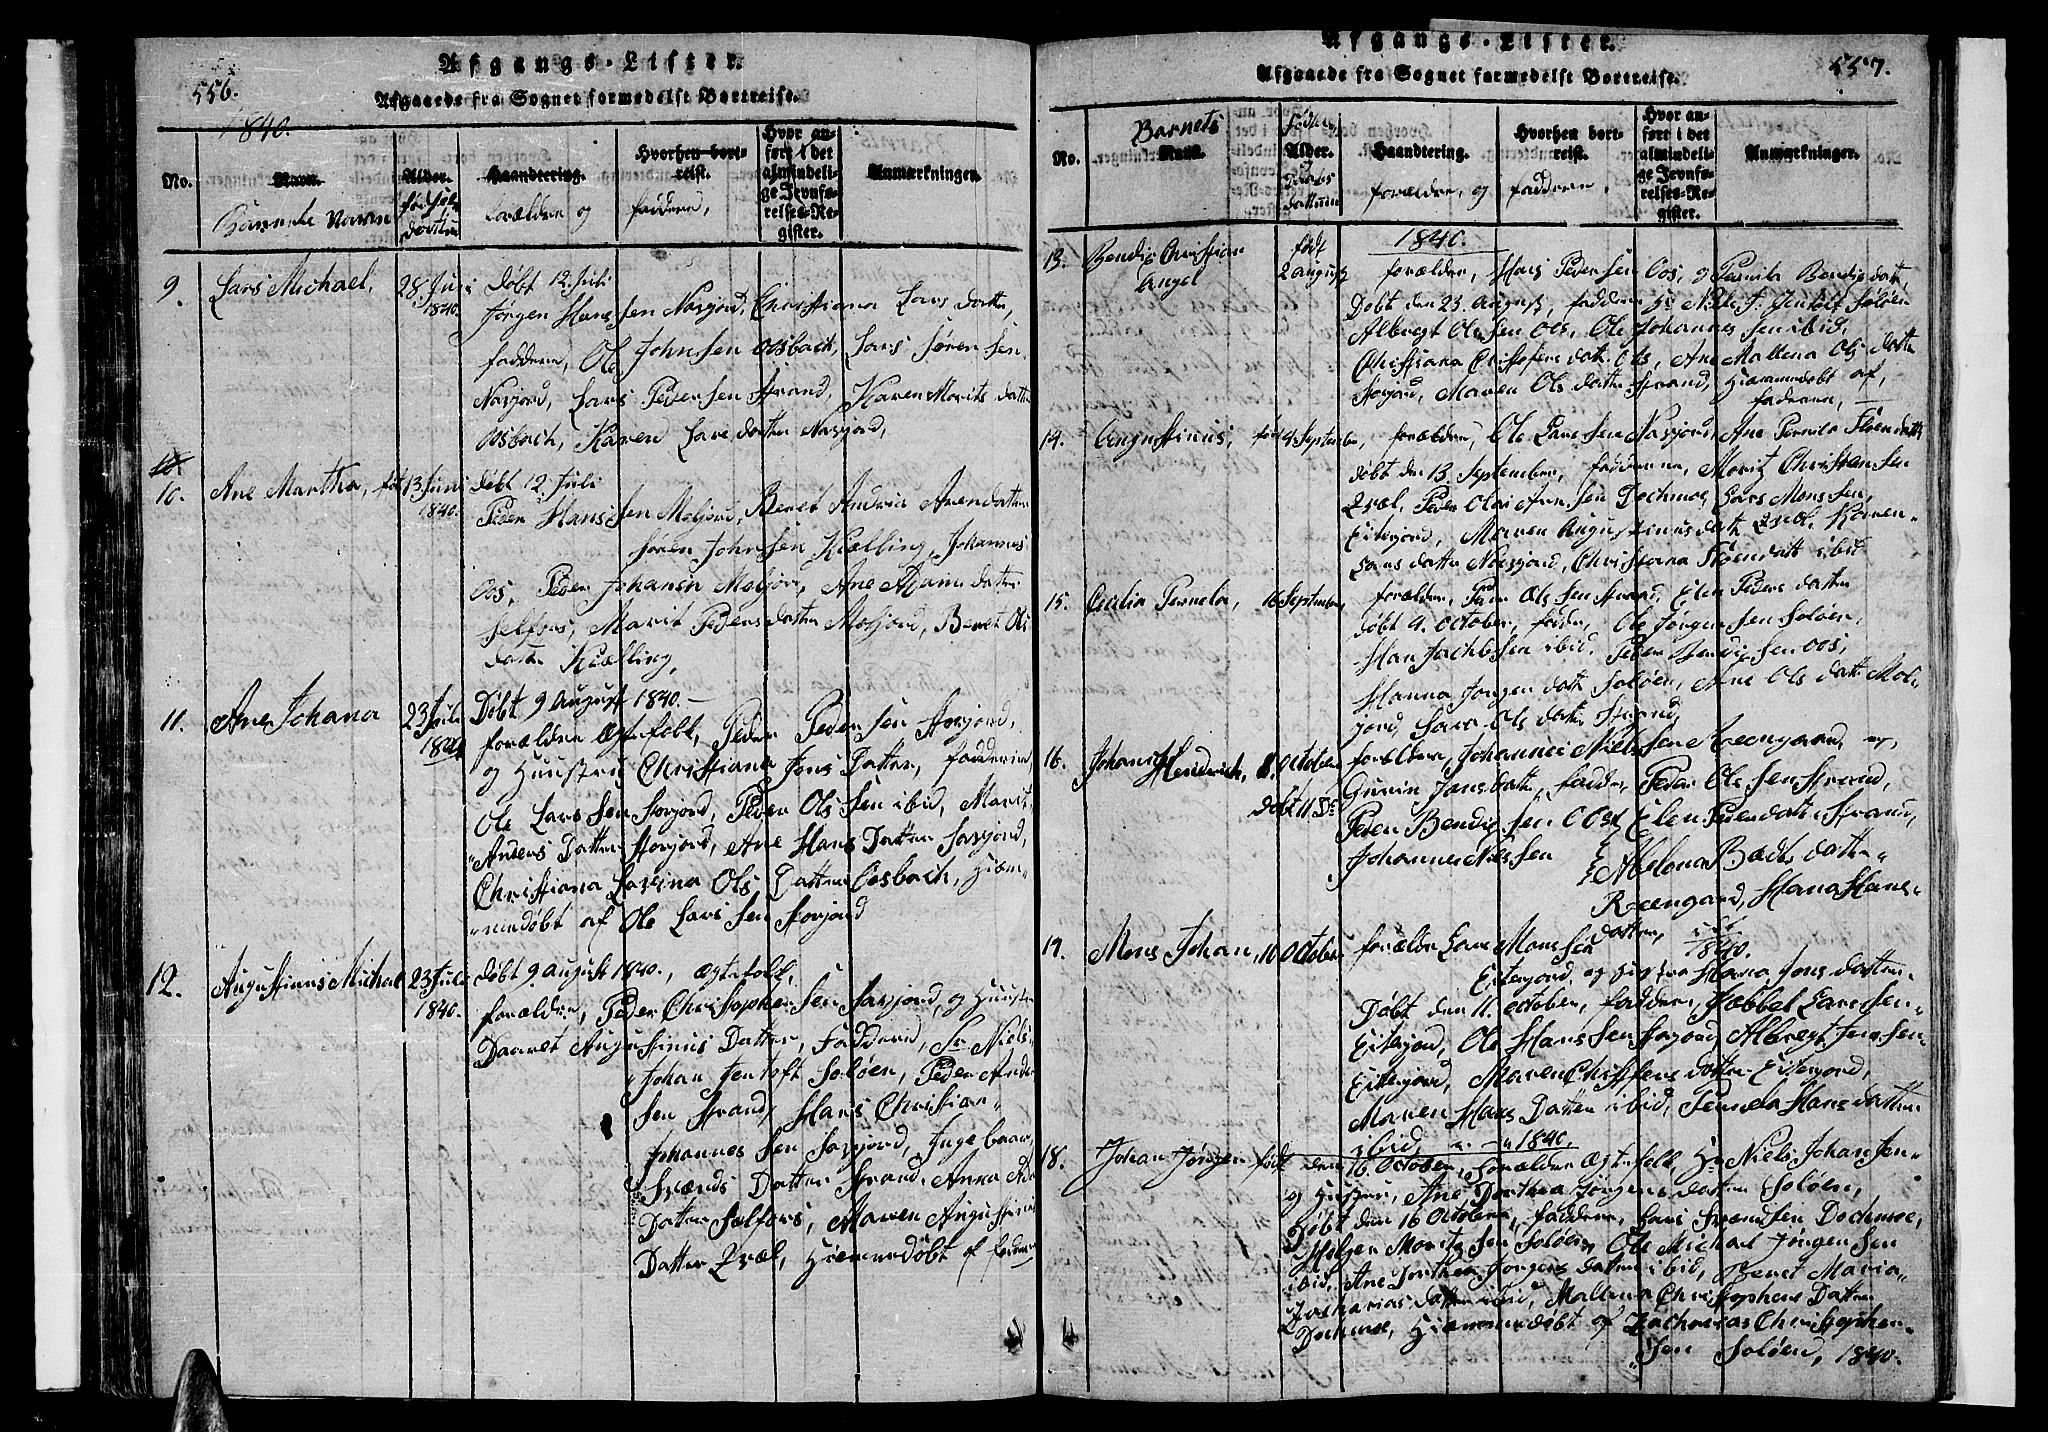 556.
Afgangs-Lister.
Afgaaede fra Sognet formedelst Bortreise.
1840.
No.
Navn.
Alder.
Haandtering.
Hvorhen bortreist.
Hvor anført i det almindelige Jevnførelses-Register.
Anmerkninger.
Navnn
forældre og
faddere,
9. Lars Michael, 28 Juni 1840.
døbt 12. Juli
Jørgen Hans Sen Nasjord, Christiana Lars datter,
faddere, Ole John Sen Osbach, Lars Søren Sen
Nasjord, Lars Peder Sen Strand, Karen Morits datter
Osbach, Karen Lars datter Nasjord,
10. Ane Martha, 13 Juni 1840.
døbt 12. Juli
Peder Hans Sen Meljord, Beret Andria Aren datter
Søren John Sen Kiælling, Johannes
Oos, Peder Johansen Meljord, Ane datter
Selfors, Marit Peders datter Meljord, Beret Ols
datter Kiælling,
11. Ane Johana 23 Juli 1840
Døbt 9 august 1840.
forældre Ægtefolk, Peder Peder Sen Storjord,
og Huustru Christiana Jons Datter, fadderne,
Ole Lars Sen Storjord, Peder Ols Sen ibid, Marit
Anders Datter Storjord, Ane Hans Datter Sasjord,
Christiana Lovina Ols Datter Oosbach, Hiem-
medøbt af Ole Lars Sen Storjord
12. Augustinus Michal 23 Juli 1840.
døbt 9. august 1840., ægtefolk,
forældre, Peder Christophersen Sasjord, og Huustru
Daaret Augustinus Datter, Faddere, Sr Niels
Johan Jentoft Soløen, Peder Ander
Sen Strand, Hans Christian
Johannes Sen Sasjord, Ingebaar
Svends Datter Strand, Anna
Datter Selfors, Maren Augustinus
Datter Qvæl, Hiemmedøbt af fader
557.
Afgangs-Lister.
Afgaaede fra Sognet formedelst Bortreise.
No.
Barnets
Navn.
Alder.
Haandtering.
Hvorhen bortreist.
Hvor anført i det almindelige Jevnførelses-Register.
Anmærkninger.
forældre, og
faddere,
1840.
13. Bendix Christian Angel
født 2 august
forældre, Hans Peder Sen Oos, og Pernila Bendix datter,
Døbt den 23. August, faddere Hr Niels J. Jentoft Soløen
Albregt Ole Sen Oos, Ole Johannes Sen ibid,
Christiana Cristofers datter Oos, Ane Mallena Ols datter
Storjord, Maren Ols datter Strand, Hiemmedøbt af
faderen,
14. Augustinus, 4 September,
forældre, Ole Lars Sen Nasjord, Ane Pernila datter
døbt den 13. September, fadderne, Morits Christen Sen
Qvæl, Peder Olai Arn Sen Dochmoe, Lars Mons Sen,
Eiterjord, Maren Augustinus datter Qvæl, Karen
Lars datter Nassjord, Christiana datter ibid
15. Cecilia Pernela, 16 September
forældre, Peder Ols Sen Strand, Elen Peders datter
døbt 4. October, faddere, Ole Jørgen Sen Soløen,
Hans Jachob Sen ibid, Peder Bendix Sen Oos,
Hanna Jørgen datter Soløen, Ane Ols datter Mel-
jord, Sara Ols datter Strand,
16. Johan Hendrich, 8. October
døbt 11. Ds
forældre, Johannes Niels Sen Reengaard, og,
Guren Jons datter, faddere, Peder Ols Sen Strand,
Peder Bendix Sen Oos, Elen Peders datter Strand,
Johannes Niels Sen
Melena datter
Reengaard, Hana Hans
datter, ibid
1840.
17. Mons Johan, 10 October
forældre Lars Mons Sen
Eiterjord, og Hustru Maria Jons datter
Døbt den 11. october, faddere, Hæbbel Lars Sen
Eiterjord, Ole Hans Sen Storjord, Albregt Jens Sen
Eiterjord, Maren Christens datter Eiterjord,
Maren Hans Datter ibid, Pernela Hans datter
ibid, 1840.
18. Johan Jørgen, født den 16. October, Forældre Ægtefolk, Hr Niels Johan Jen-
og Hustru, Ane Dorthea Jørgens datter Soløen,
Døbt den 16 October, faddere, Lars Svend Sen Dochmoe,
Holger Morits Sen Soløen, Ole Michael Jørgen Sen
ibid, Ane Dorthea Jørgens datter ibid, Beret Maria
Zacharias datter ibid, Mallena Christophers Datter
Dochmoe, Hiemmedøbt af Zacharias Christopher
Sen Soløen, 1840.